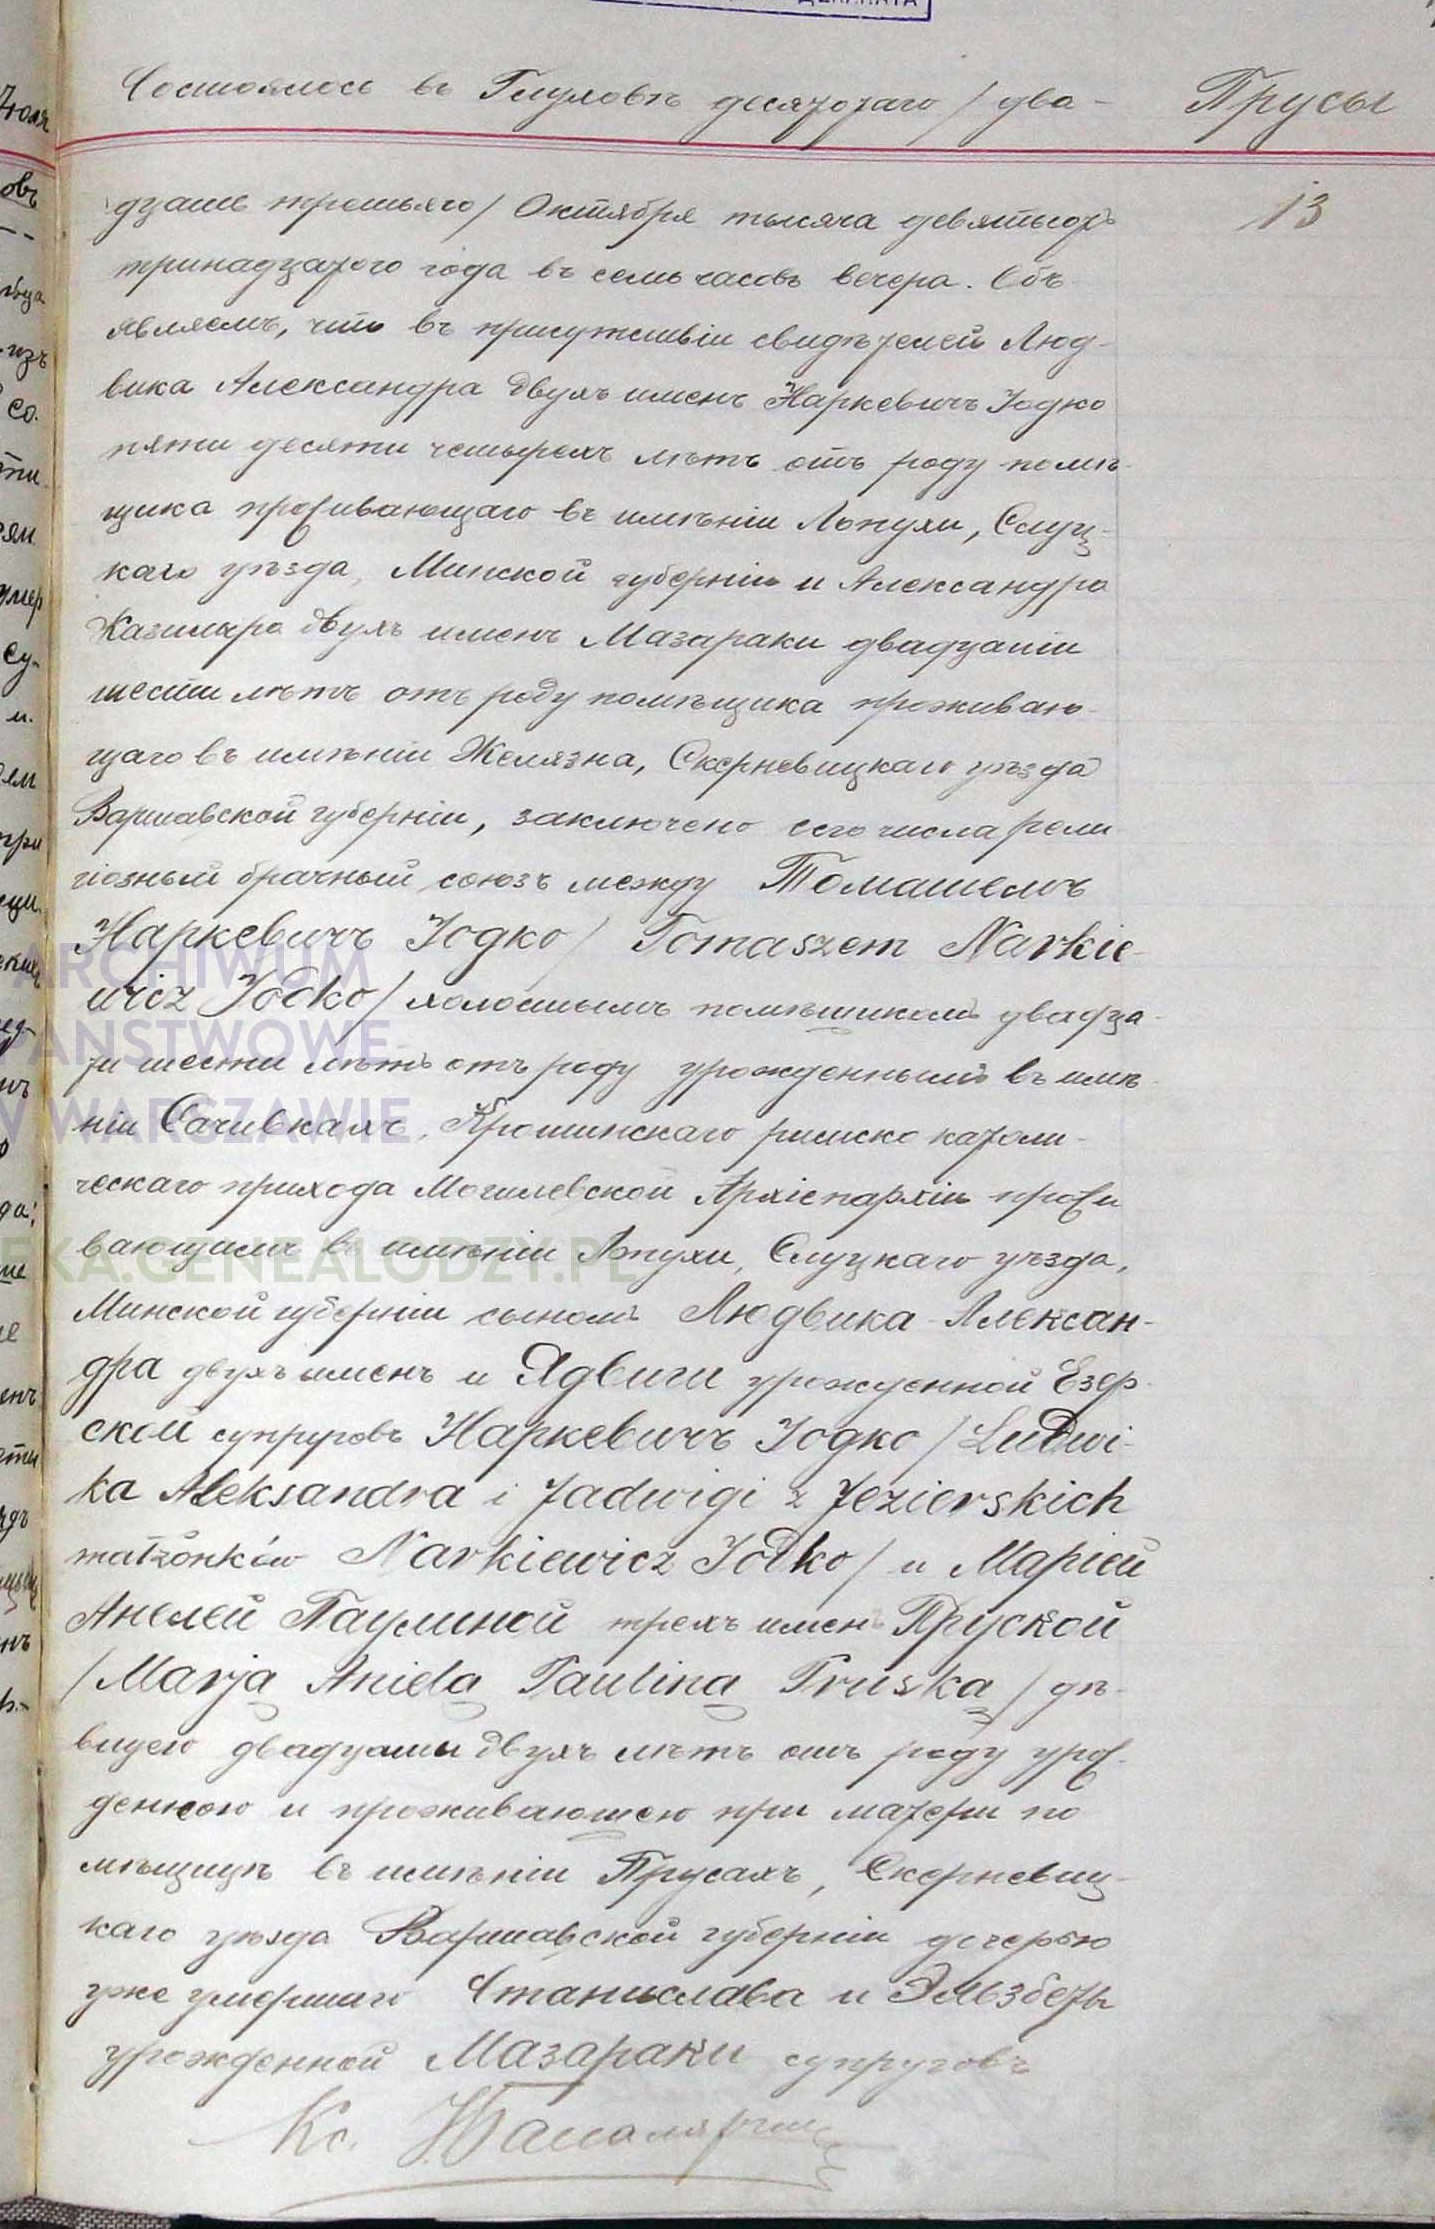 ДЕКАНАТА
Состоялось въ Глуховѣ десятаго / два-
Прусы
13
дцать третьяго / Октября тысяча девятьсотъ
тринадцатого года въ семь часовъ вечера. Объ
являемъ, что въ присутствіи свидѣтелей Люд-
вика Александра двухъ именъ Наркевичъ Іодко
пяти десяти четырехъ лѣтъ отъ роду помѣ-
щика проживающаго въ имѣніи Лопухи, Слуц-
каго уѣзда, Минской губерніи и Александра
Казимира двухъ именъ Мазараки двадцати
шести лѣтъ отъ роду помѣщика проживаю-
щаго въ имѣніи Желязна, Скерневицкаго уѣзда
Варшавской губерніи, заключено сего числа рели
гіозный брачный союзъ между Томашемъ
Наркевичъ Іодко / Tomaszem Narkie-
wicz Jodko / холостымъ помѣщикомъ двадца-
ти шести лѣтъ отъ роду урожденнымъ въ имѣ-
ніи Сачивкахъ, Крошинскаго римско католи-
ческаго прихода Могилевской Архіепархіи прожи
вающимъ въ имѣніи Лопухи, Слуцкаго уѣзда,
Минской губерніи сыномъ Людвика-Алексан-
дра двухъ именъ и Ядвиги урожденной Езер-
ской супруговъ Наркевичъ Іодко / Ludwi-
ka Aleksandra i Jadwigi z Jezierskich
małżonków Narkiewicz Jodko / и Маріей
Анелей Паулиной трехъ именъ Пруской
/ Marja Aniela Paulina Pruska / дѣ-
вицею двадцати двухъ лѣтъ отъ роду урож-
денною и проживающею при матери по
мѣщицѣ въ имѣніи Прусахъ, Скерневиц-
каго уѣзда Варшавской губерніи дочерью
уже умершаго Станислава и Эльзбеты
урожденной Мазараки супруговъ
Кс.
ARCHIWUM
PAŃSTWOWE
W WARSZAWIE
EKA.GENEALODZY.PL